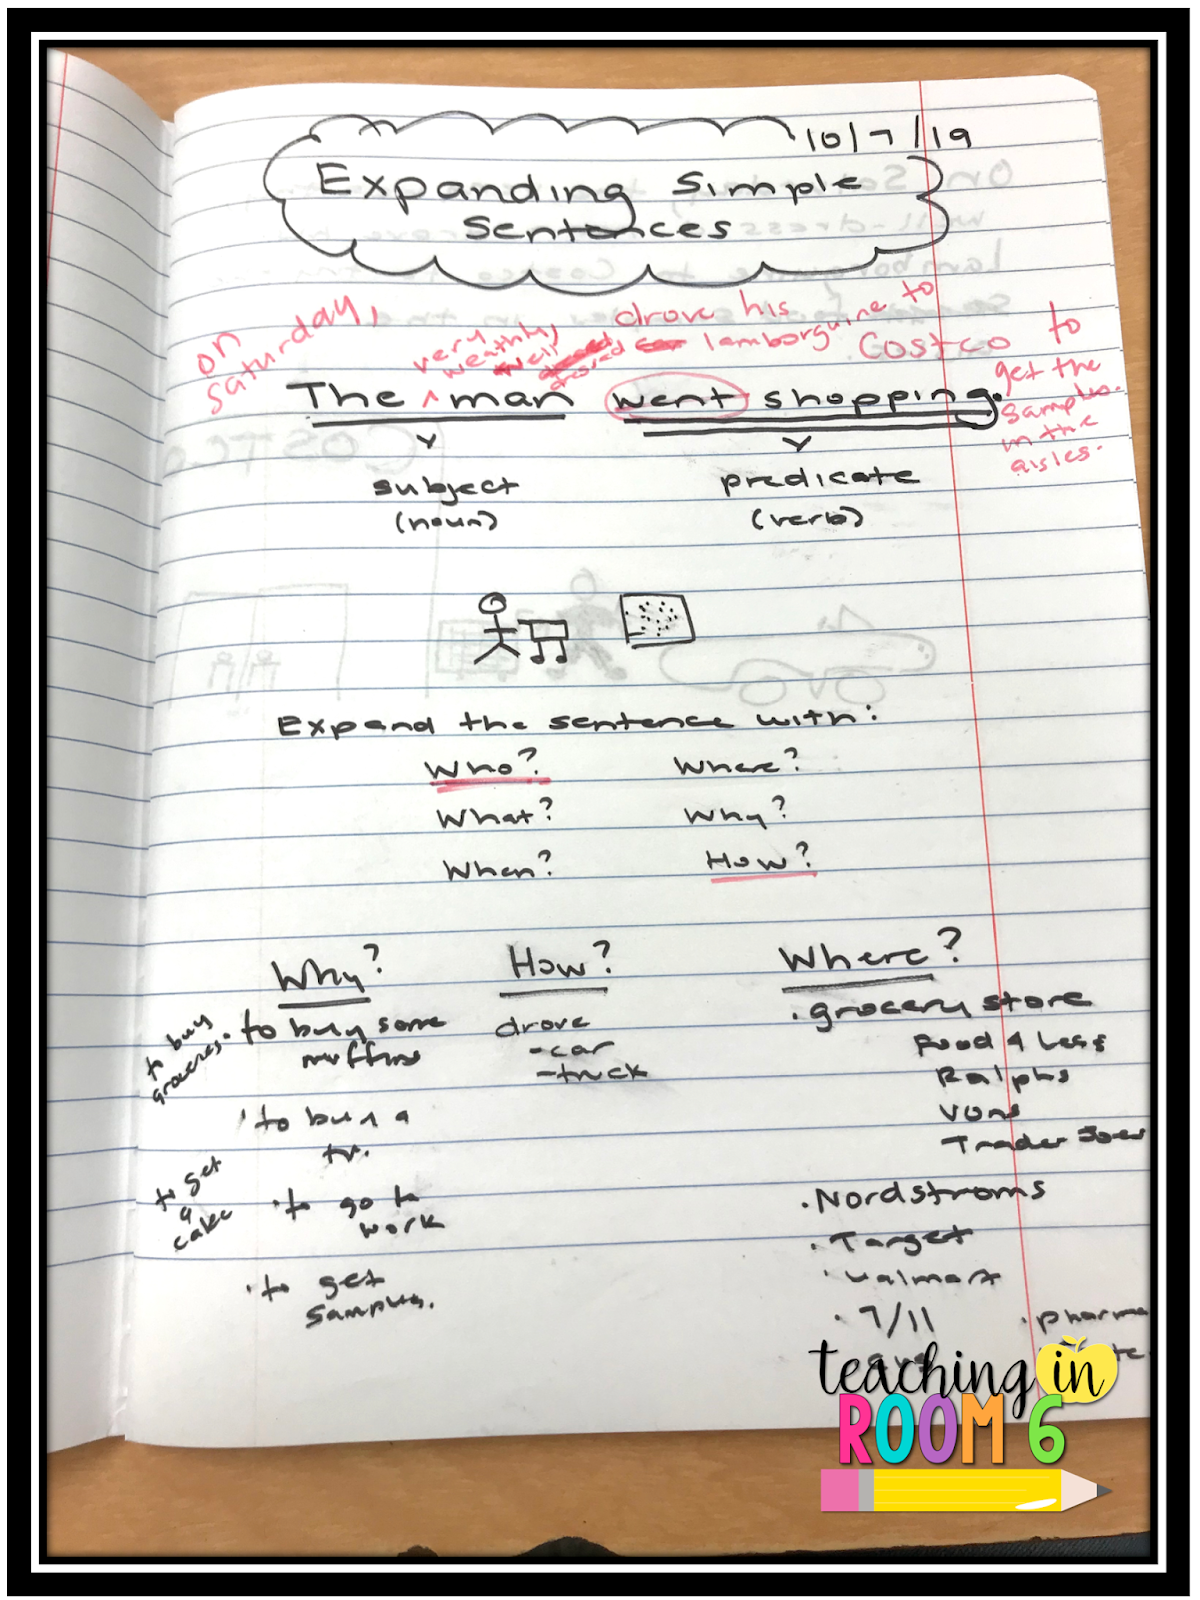 10/7/19
Expanding Simple
Sentences
on
saturday,
very
weathly,
well
drove his
lamborguine to
Costco to
get the
samples
in the
aisles.
The ^ man went shopping.
subject predicate
(noun) (verb)
Expand the sentence with:
Who? Where?
What? Why?
When? How?
Why? How? Where?
to buy
groceries.
to buy some
muffins
'to buy a
tv.
to get
a
cake
·to go to
work
·to get
samples.
drove
-car
-truck
·grocery store
Food 4 Less
Ralphs
Vons
Trader Joes
·Nordstroms
·Target
·Walmart
·7/11
·pharma
teaching in
ROOM 6